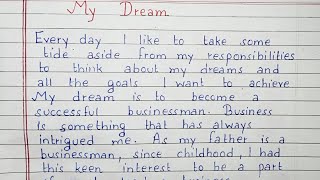 My Dream
Every day I like to take some
tide aside from my responsibilities
to think about my dreams and
all the goals I want to achieve
My dream is to become a
successful businessman. Business
is something that has always
intrigued me. As my father is a
businessman, since childhood, I had
this keen interest to be a part